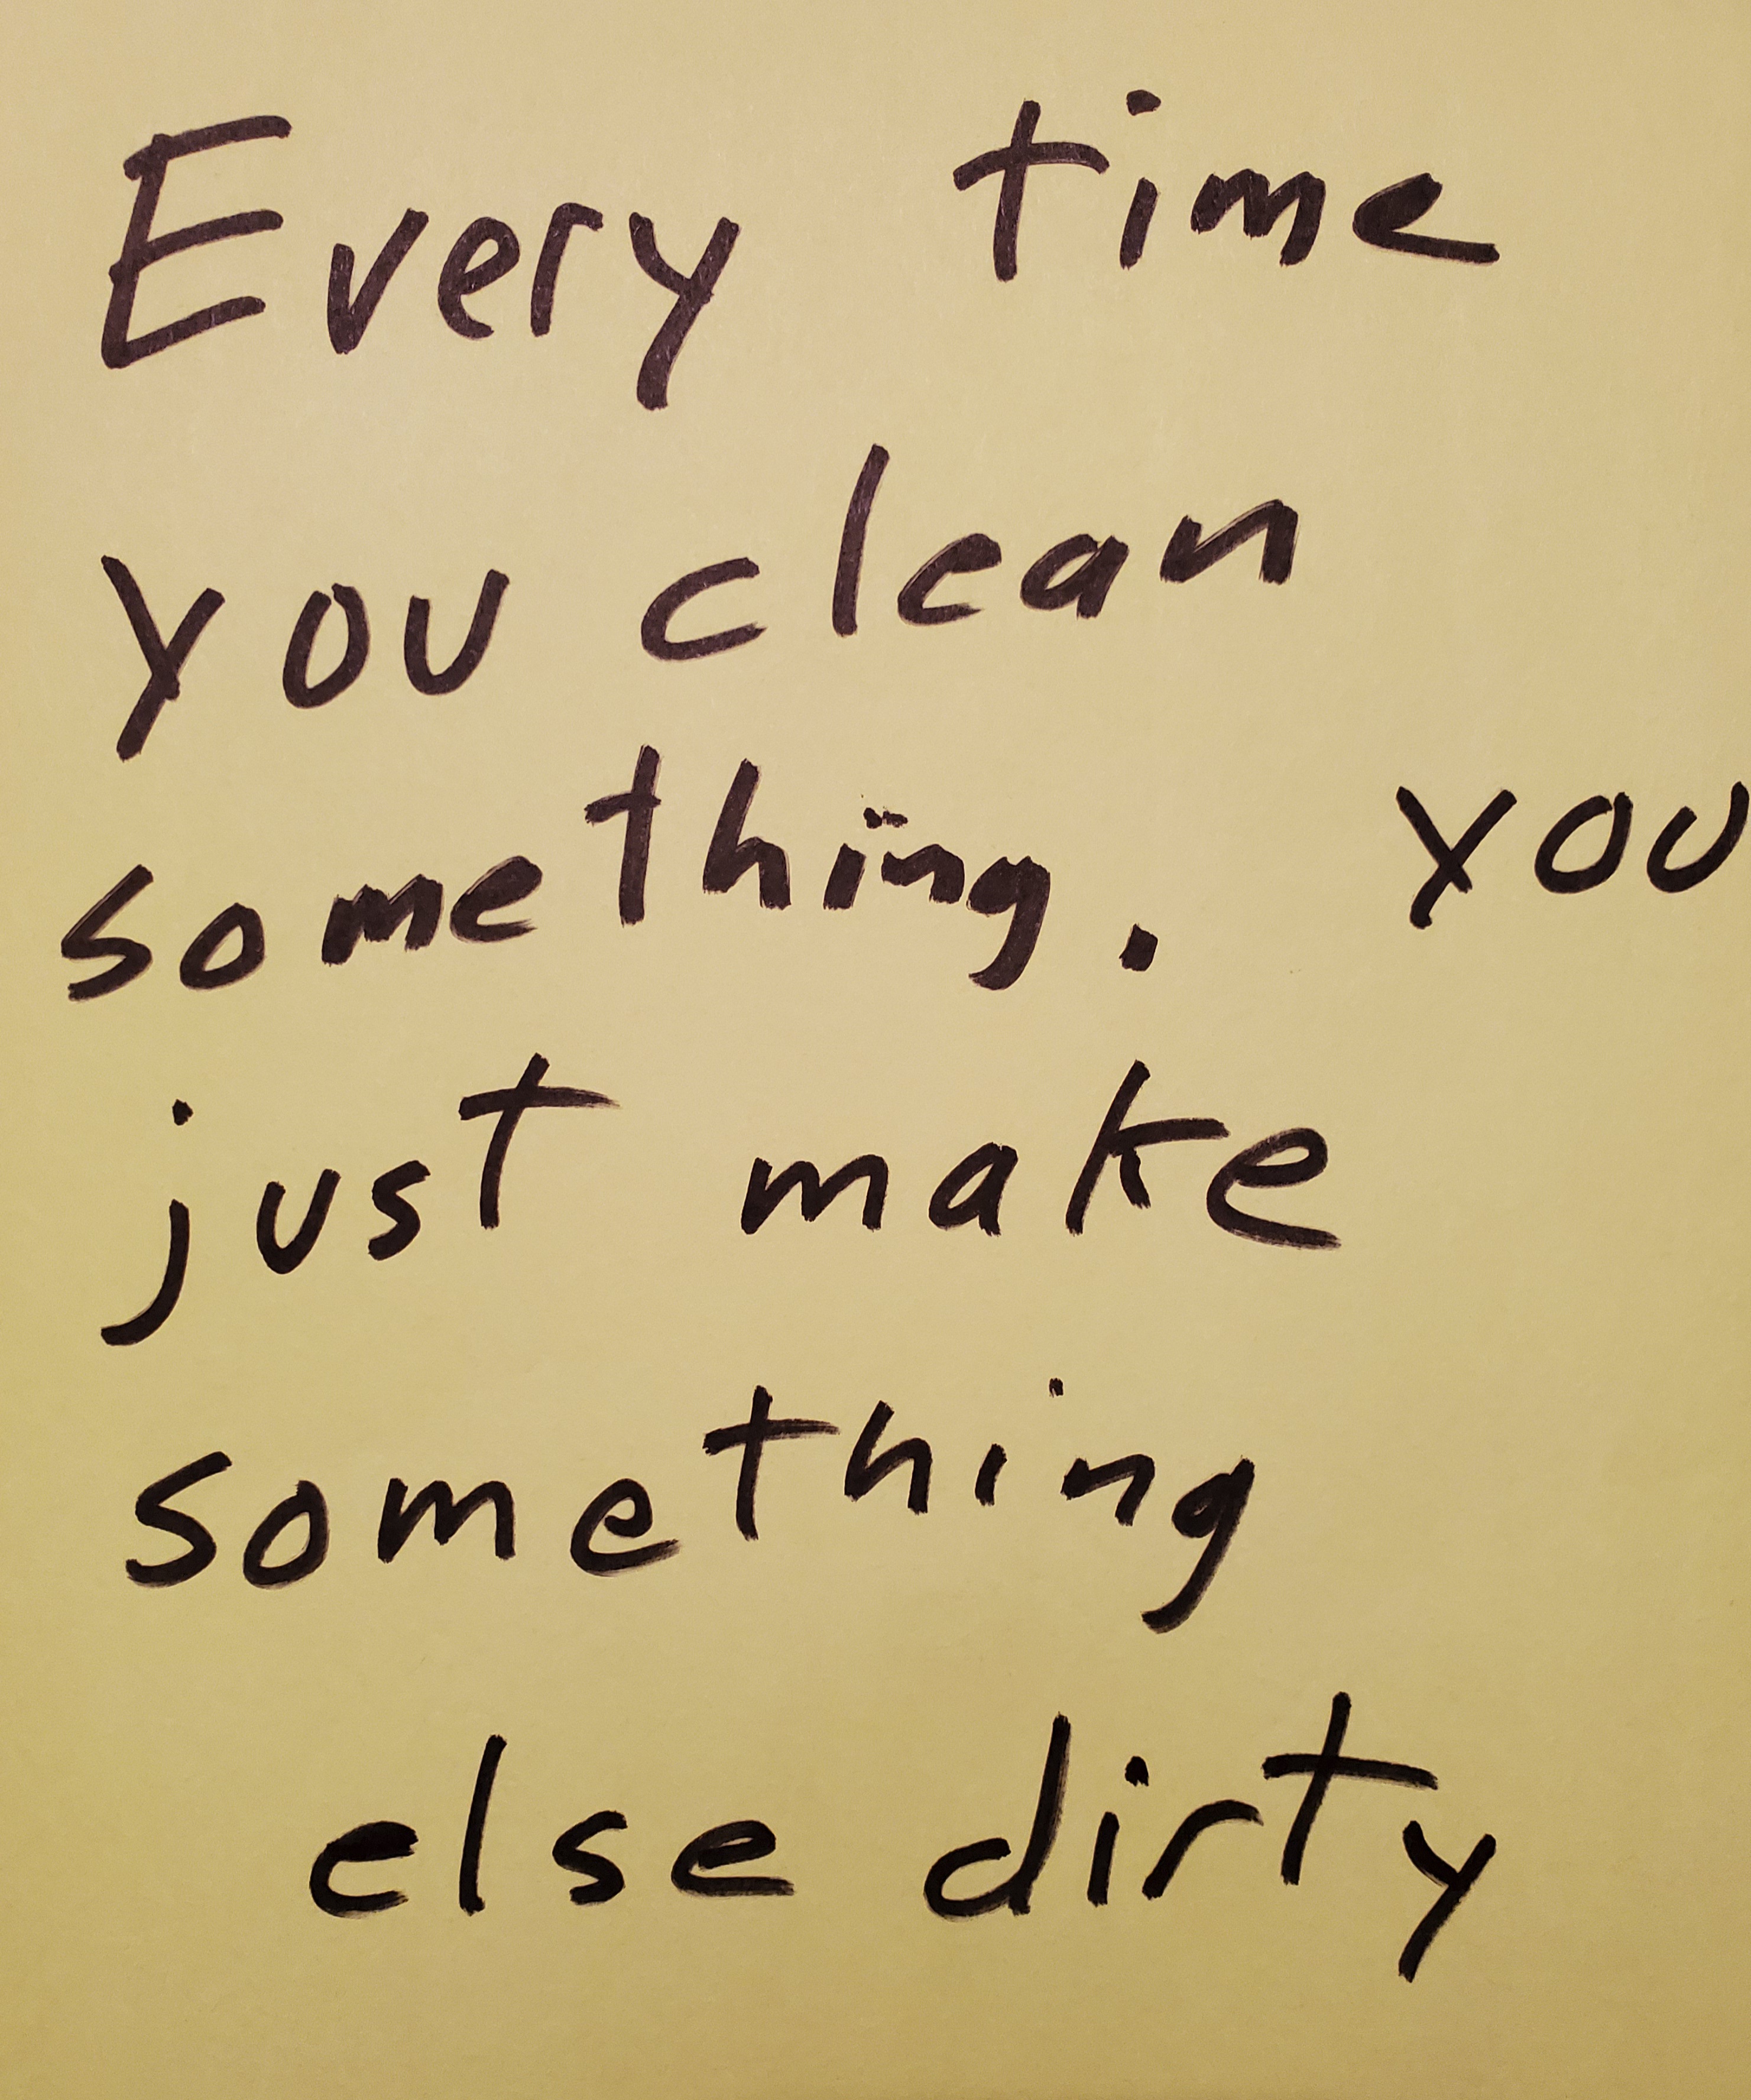 Every time
you clean
something. you
just make
something
else dirty